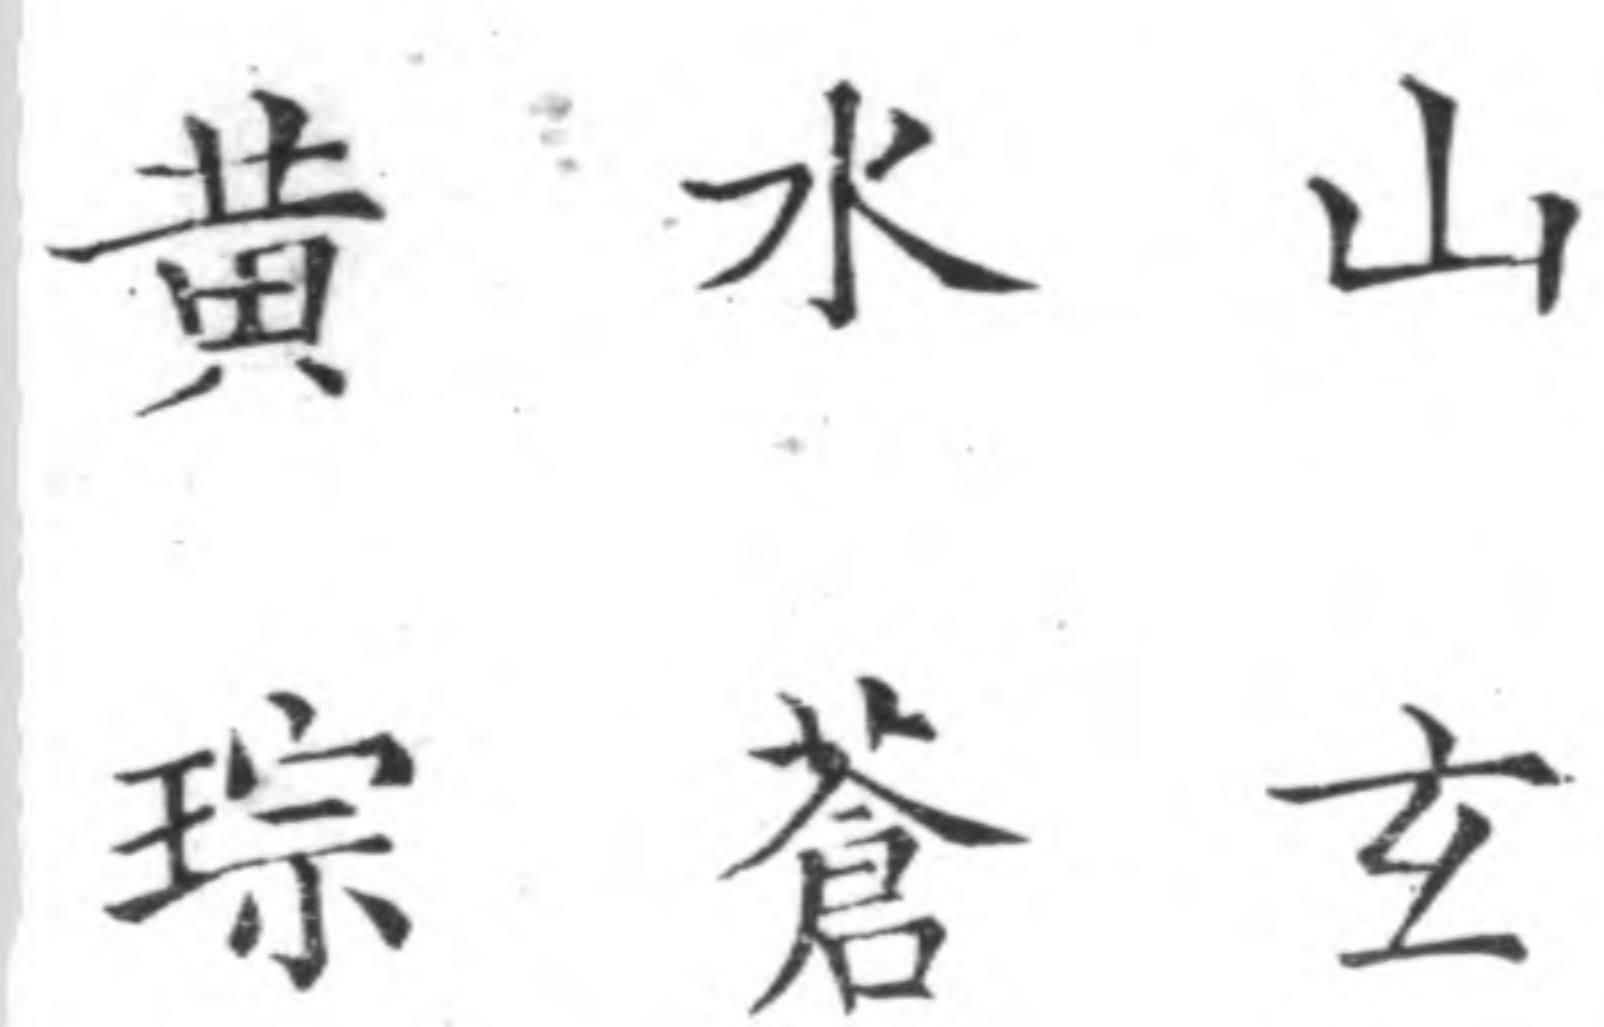 山玄
水蒼
黄琮